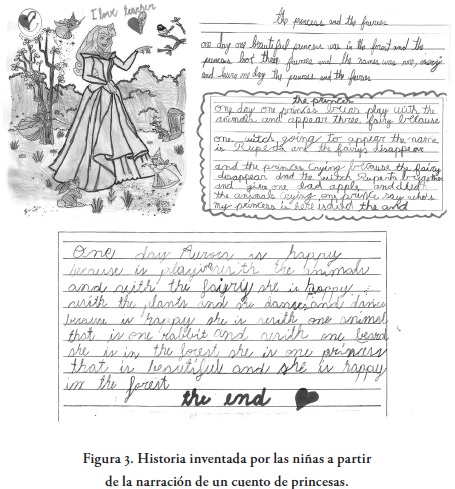 I love
the princess and the fairies
one day one beautiful princess was in the forest and the
princess look three fairies and the names was rose,
and laura one day the princess and the fairies
the princes
one day one princes play with the
animals and appear three fairy because
one witch going to appear the name
is Ruperta and the fairys disappear
and the princes crying because the fairy
disappear and the witch Ruperta
and give one bad apple and died
the animals crying one prince say where
my princess is here the end
One day Auror is happy
because is play with the animals
and with the faigry she is happy
with the plants and she dance, and dance
because is happy she is with one animal
that is one rabbit and with one beard
she is in the forest she is one princess
that is beautiful and she is happy
in the forest
the end
Figura 3. Historia inventada por las niñas a partir
de la narración de un cuento de princesas.